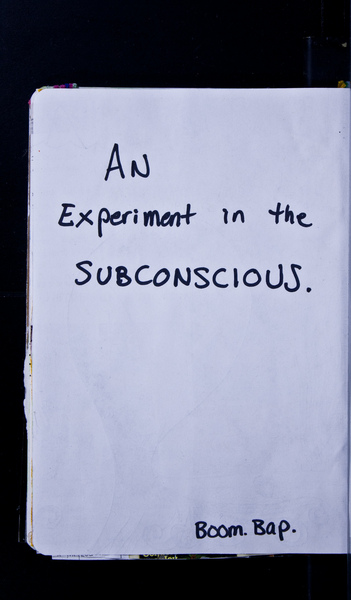 AN
Experiment in the
SUBCONSCIOUS.
Boom. Bap.